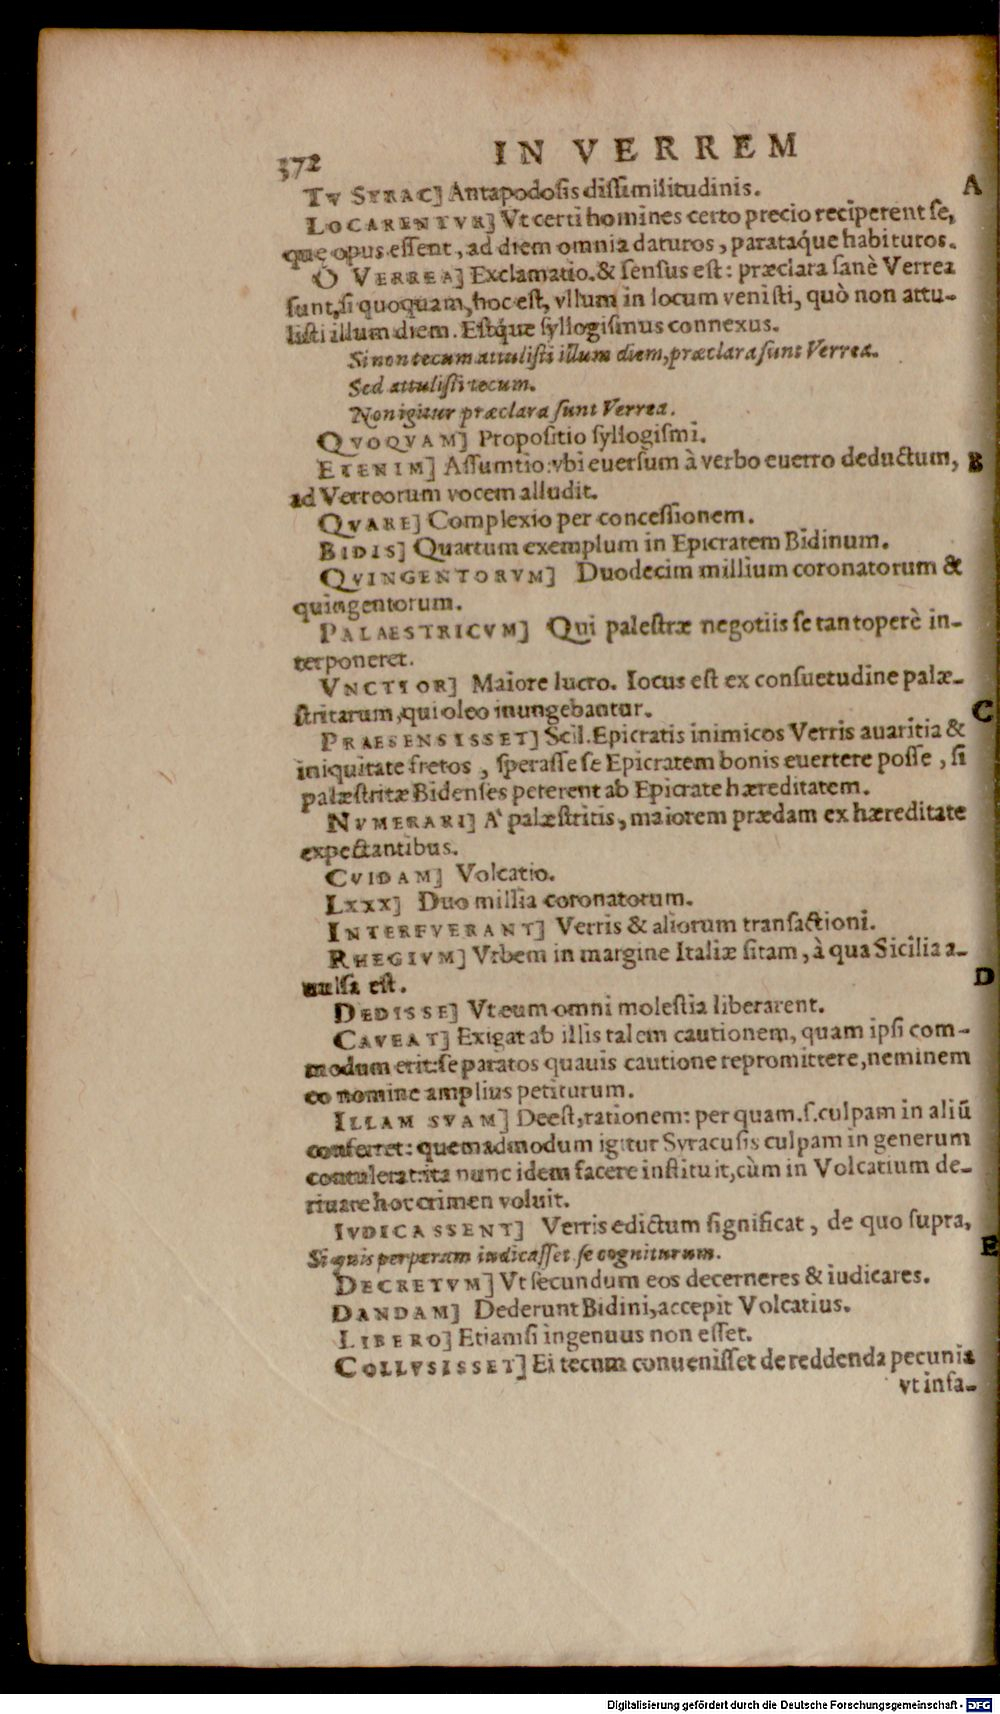 372 IN VERREM
TV SYRAC] Antapodosis dissimilitudinis. A
LOCARENTVR] Vt certi homines certo precio reciperent se,
quę opus essent, ad diem omnia daturos, paratáque habituros.
O VERREA] Exclamatio. & sensus est: præclara sanè Verrea
sunt, si quoquam, hoc est, vllum in locum venisti, quò non attu-
listi illum diem. Estque syllogismus connexus.
Si non tecum attulisti illum diem, præclara sunt Verrea.
Sed attulisti tecum.
Non igitur præclara sunt Verrea.
QVOQVAM] Propositio syllogismi.
ETENIM] Assumtio: vbi euersum à verbo euerro deductum, B
ad Verreorum vocem alludit.
QVARE] Complexio per concessionem.
BIDIS] Quartum exemplum in Epicratem Bidinum.
QVINGENTORVM] Duodecim millium coronatorum &
quingentorum.
PALAESTRICVM] Qui palestræ negotiis se tantoperè in-
terponeret.
VNCTIOR] Maiore lucro. Iocus est ex consuetudine palæ-
stritarum, qui oleo inungebantur. C
PRAESENSISSET] Scil. Epicratis inimicos Verris auaritia &
iniquitate fretos, sperasse se Epicratem bonis euertere posse, si
palæstritæ Bidenses peterent ab Epicrate hæreditatem.
NVMERARI] A' palæstritis, maiorem prædam ex hæreditate
expectantibus.
CVIDAM] Volcatio.
LXXX] Duo millia coronatorum.
INTERFVERANT] Verris & aliorum transactioni.
RHEGIVM] Vrbem in margine Italiæ sitam, à qua Sicilia a-
uulsa est. D
DEDISSE] Vt eum omni molestia liberarent.
CAVEAT] Exigat ab illis talem cautionem, quam ipsi com-
modum erit: se paratos quauis cautione repromittere, neminem
eo nomine amplius petiturum.
ILLAM SVAM] Deest, rationem: per quam .s. culpam in aliū
conferret: quemadmodum igitur Syracusis culpam in generum
contulerat: ita nunc idem facere instituit, cùm in Volcatium de-
riuare hoc crimen voluit.
IVDICASSENT] Verris edictum significat, de quo supra,
Si quis perperam iudicasset se cogniturum. E
DECRETVM] Vt secundum eos decerneres & iudicares.
DANDAM] Dederunt Bidini, accepit Volcatius.
LIBERO] Etiamsi ingenuus non esset.
COLLVSISSET] Ei tecum conuenisset de reddenda pecunia
vt insa-
Digitalisierung gefördert durch die Deutsche Forschungsgemeinschaft - DFG